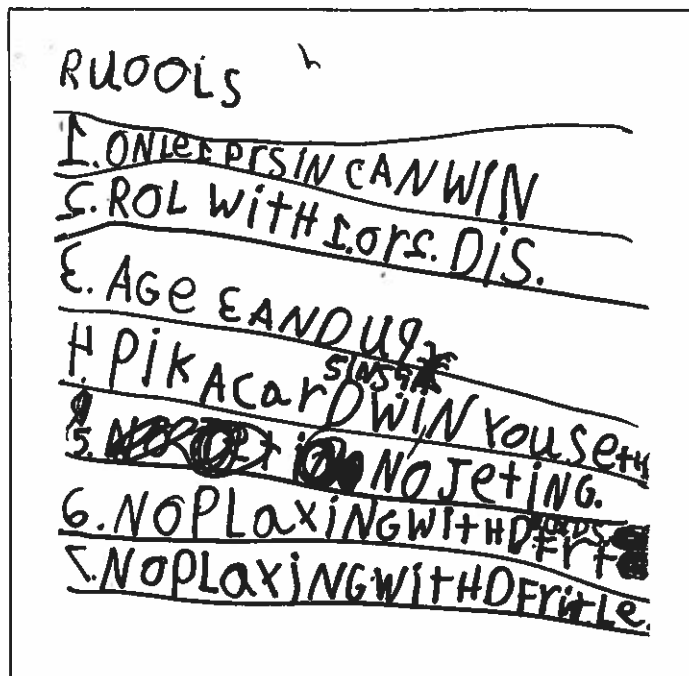 RUOOLS
1. ONLeE 1 PrSIN CAN WIN
2. ROL WITH 1. Or 2. DIS.
3. AGe 3 AND UP
4. PIK A CarD WIN YOU Se tH
SINS
5. NO JetING.
6. NO PLaYING WITH DFrt
7. NO PLaYING WITH D FrittLe.